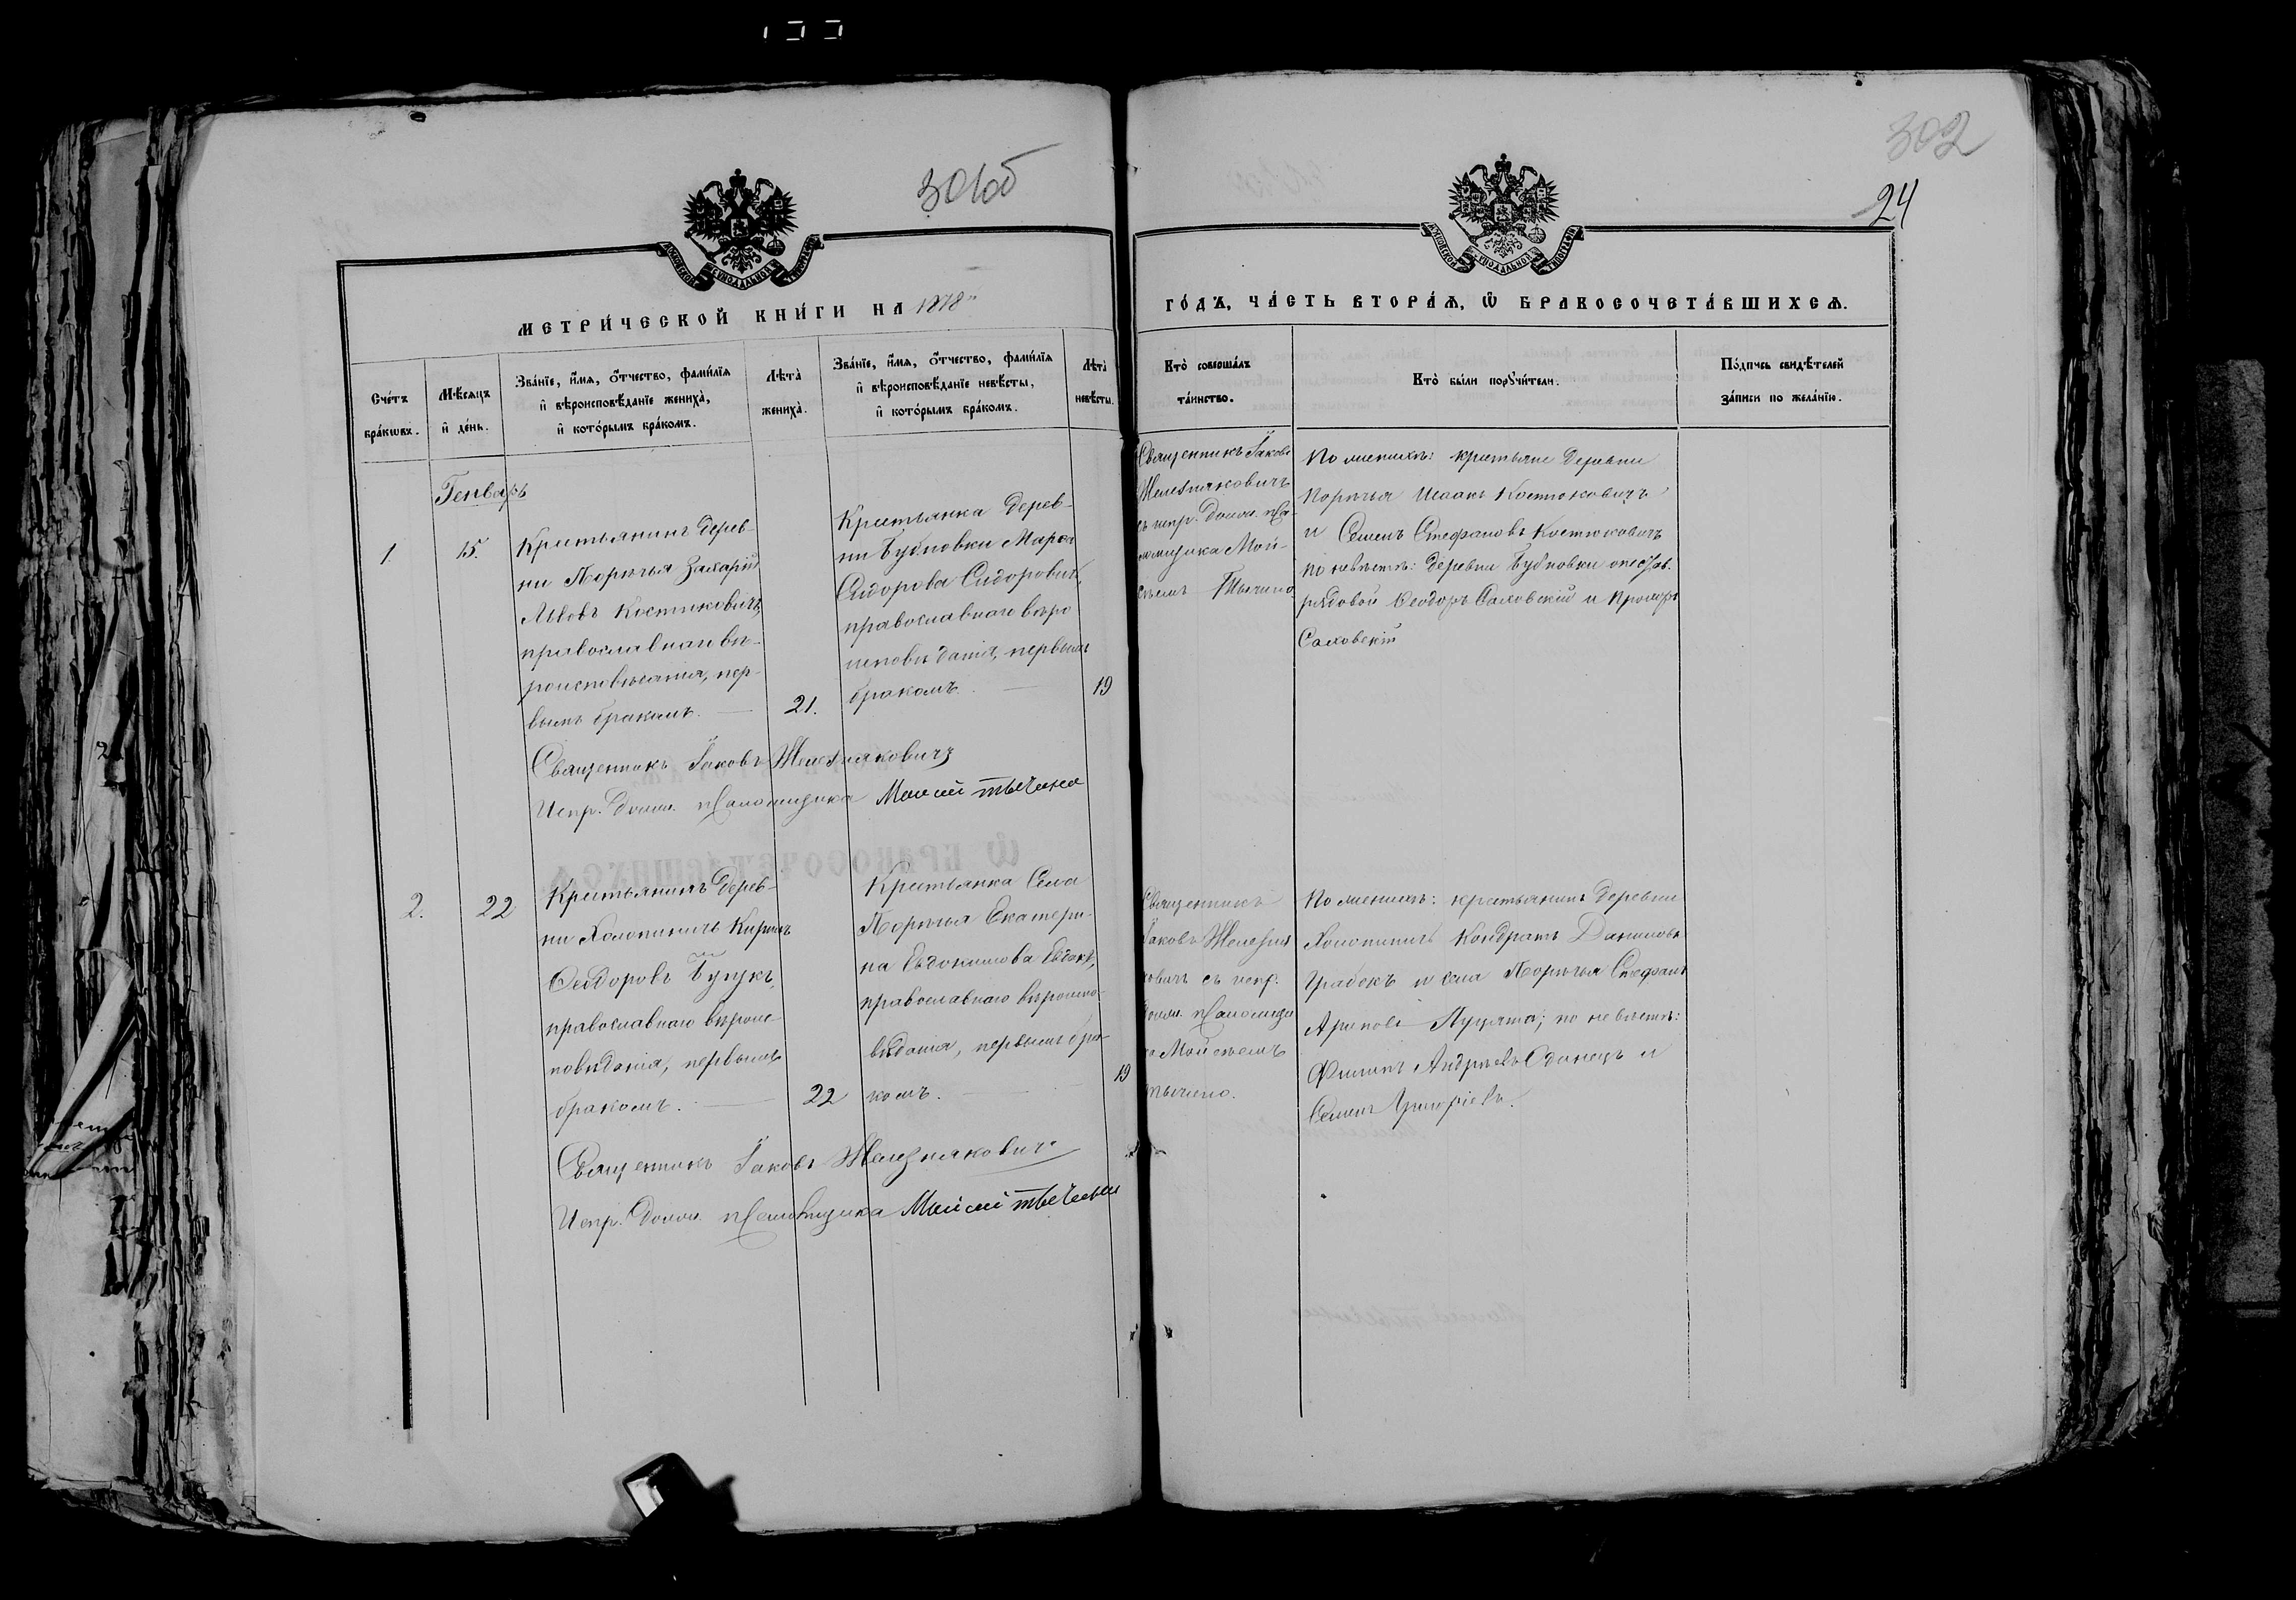 301об
302
24
МЕТРИ́ЧЕСКОЙ КНИ́ГИ НА 1878й
ГО́ДЪ, ЧА́СТЬ ВТОРА́Ѧ, Ѽ БРАКОСОЧЕТА́ВШИХСѦ.
Сче́тъ бра́кѡвъ.
Мѣ́сѧцъ и҆ де́нь.
Зва́нїе, и҆́мѧ, ѻ҆́тчество, фами́лїѧ
и҆ вѣроисповѣ́данїе жениха̀,
и҆ кото́рымъ бра́комъ.
Лѣта̀
жениха̀.
Зва́нїе, и҆́мѧ, ѻ҆́тчество, фами́лїѧ
и҆ вѣроисповѣ́данїе невѣ́сты,
и҆ кото́рымъ бра́комъ.
Лѣта̀
невѣ́сты.
Кто̀ соверша́лъ
та́инство.
Кто̀ бы́ли порꙋчи́тели.
По́дпись свидѣ́телей
за́писи по жела́нїю.
Генварь
1
15.
Крестьянинъ дерев-
ни Порѣчья Захарій
Львовъ Костюковичъ,
православнаго вѣ-
роисповѣданія, пер-
вымъ бракомъ.
21.
Крестьянка дерев-
ни Бубновки Марѳа
Сидорова Сидоровичъ,
православнаго вѣро
исповѣданія, первымъ
бракомъ.
19
Священникъ Іаковъ
Железняковичъ
съ испр. долж. псa-
ломщика Мой-
сеемъ Тычино
По женихѣ: крестьяне деревни
Порѣчья Исаакъ Костюковичъ
и Семенъ Стефановъ Костюковичъ
по невѣстѣ: деревни Бубновки
рядовой Ѳеодоръ Саховскій и Прохоръ
Саховскій
Священникъ Іаковъ Железняковичъ
Испр. долж. псаломщика Мойсей Тычина
2.
22
Крестьянинъ дерев-
ни Холопиничъ Кирилъ
Ѳеодоровъ Бугукъ,
православнаго вѣроис-
повѣданія, первымъ
бракомъ.
22
Крестьянка села
Порѣчья Екатери-
на Евдокимова
православнаго вѣроиспо-
вѣданія, первымъ бра-
комъ.
19
Священникъ
Іаковъ Железня
ковичъ съ испр.
долж. псаломщи
ка Мойсеемъ
Тычино.
По женихѣ: крестьянинъ деревни
Холопиничъ Кондратъ Даниловъ
Грабокъ и села Порѣчья Стефанъ
по невѣстѣ:
Филипъ Андреевъ Одинецъ и
Семенъ Григоріевъ.
Священникъ Іаковъ Железняковичъ
Испр. долж. псаломщика Мойсей Тычина